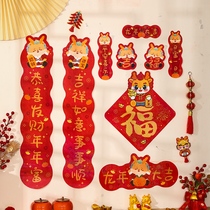 恭喜发财年年富
吉祥如意事事顺
福
龙年大吉